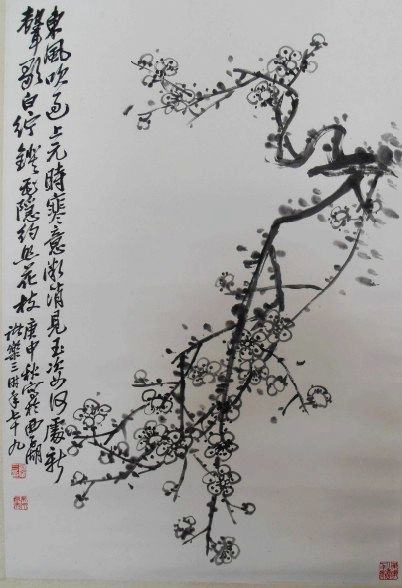 東風吹過上元時寒意漸消見玉姿何處新
聲歌白紵鐙影隱約照花枝庚申秋寫於西湖
諸樂三時年七十九